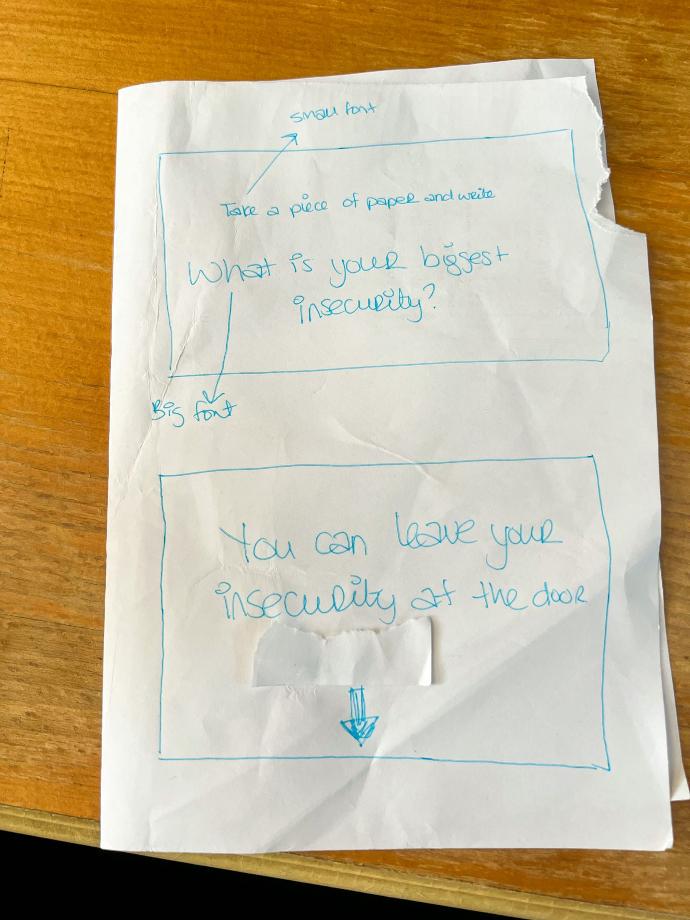 small font
Take a piece of paper and write
What is your biggest
insecurity?
Big font
You can leave your
insecurity at the door